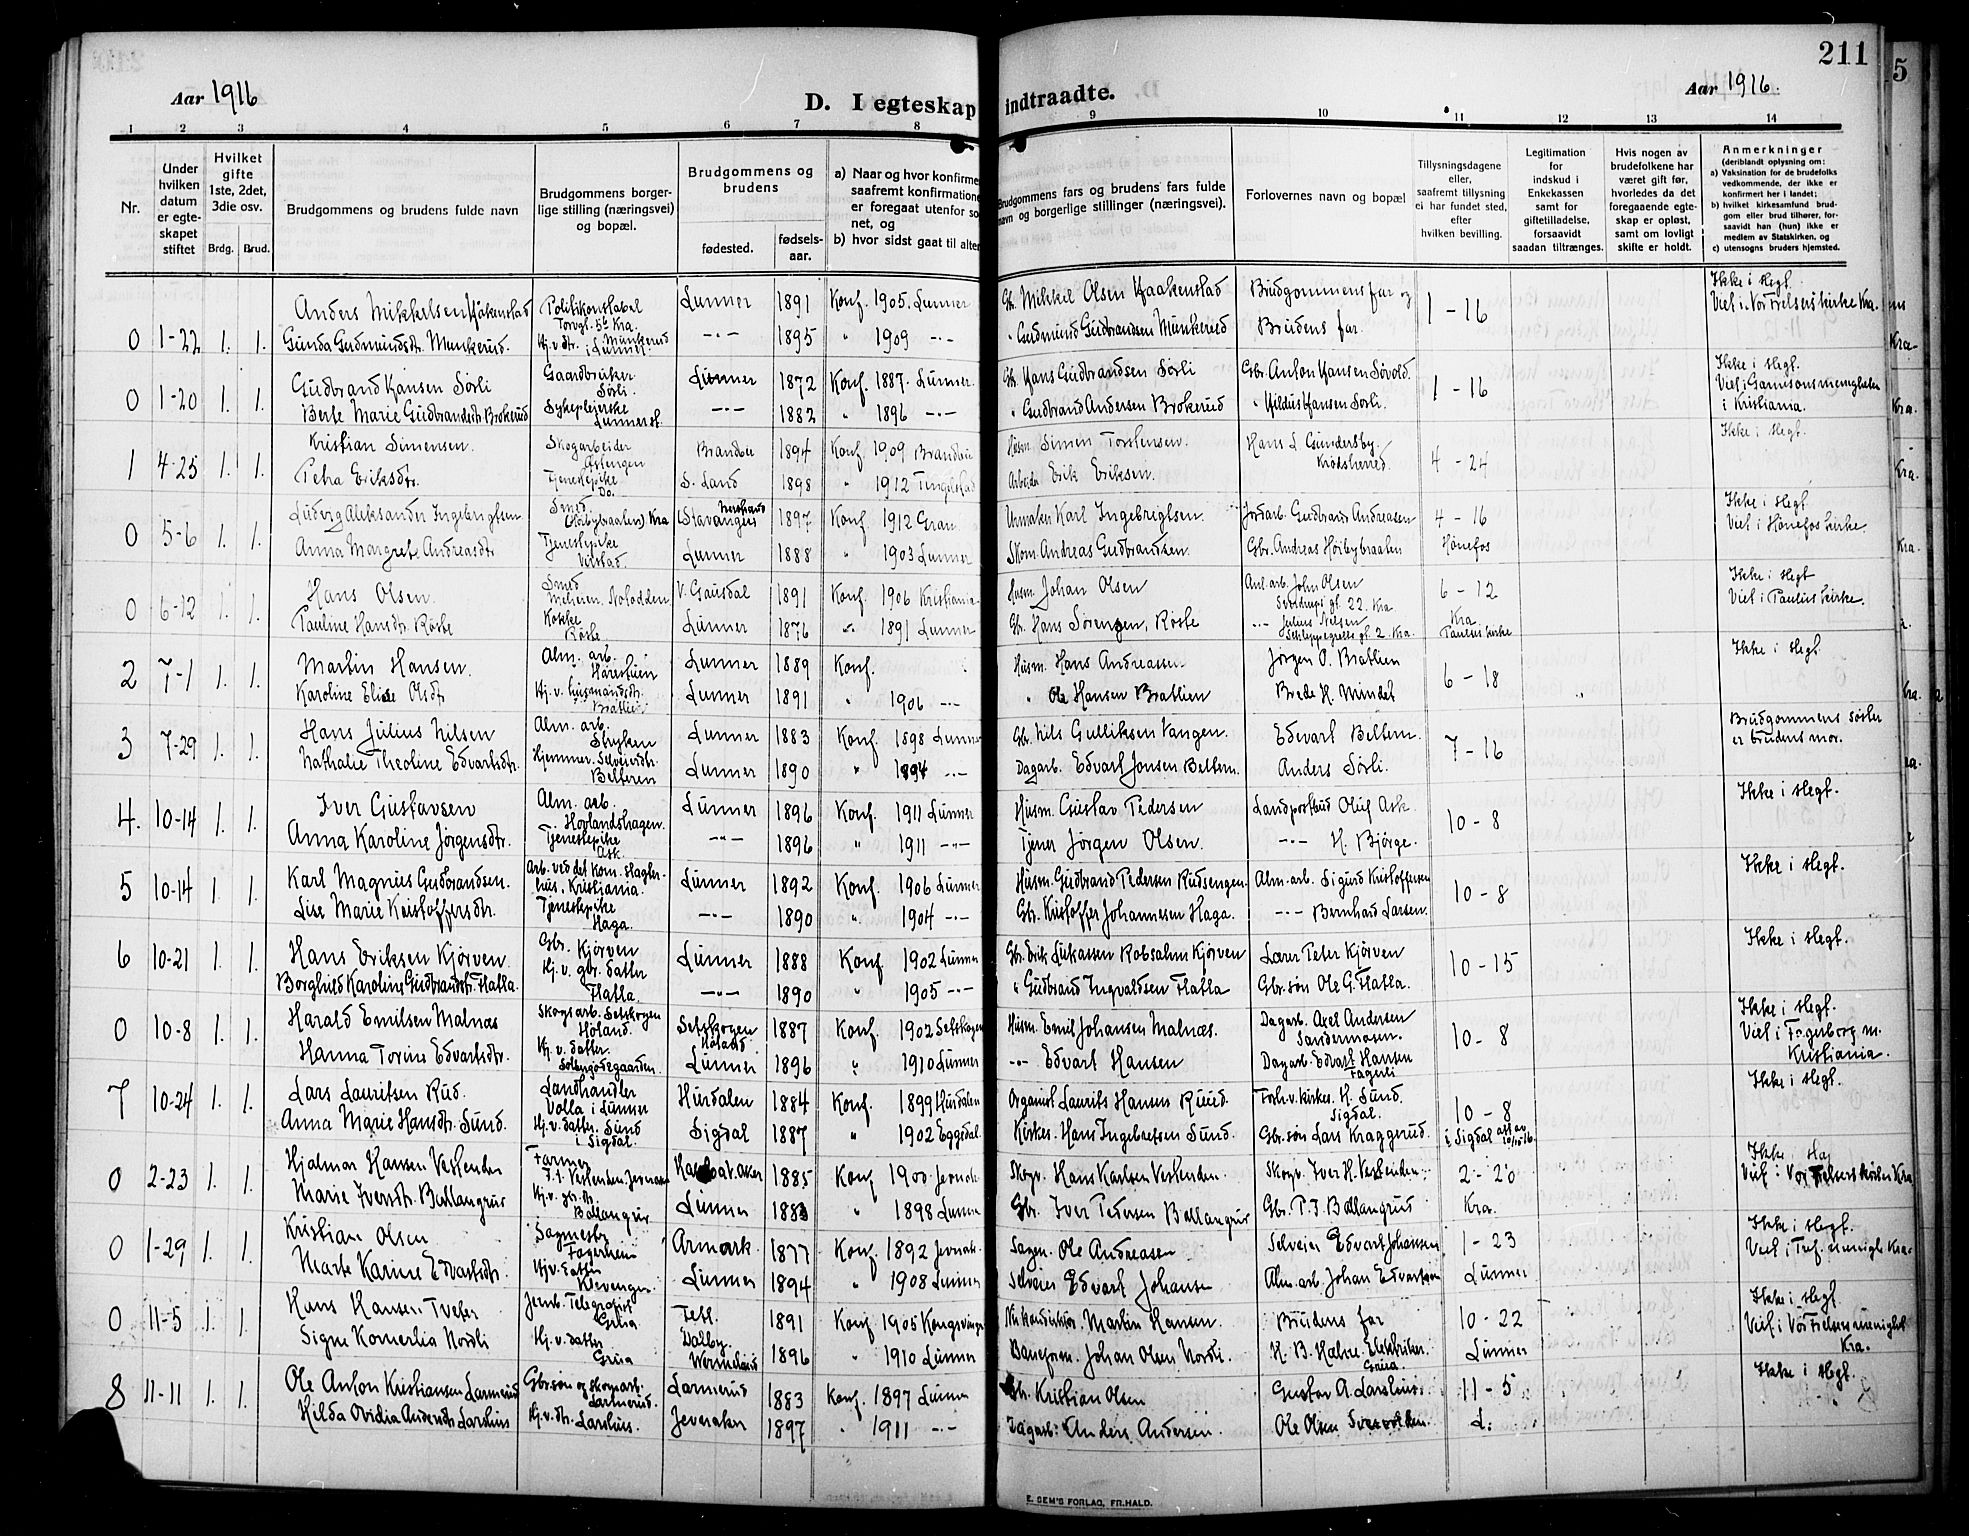 211
5
Aar 1916
D. I egteskap indtraadte.
Aar 1916.
1 2 3 4 5 6 7 8 9 10 11 12 13 14
Nr.
Under hvilken datum er egteskapet stiftet
Hvilket gifte 1ste, 2det, 3die osv.
Brdg. Brud.
Brudgommens og brudens fulde navn
Brudgommens borgerlige stilling (næringsvei) og bopæl.
Brudgommens og brudens
fødested.
fødselsaar.
a) Naar og hvor konfirme
saafremt konfirmatione
er foregaat utenfor so
net, og
b) hvor sidst gaat til alter
Brudgommens fars og brudens fars fulde navn og borgerlige stillinger (næringsvei).
Forlovernes navn og bopæl
Tillysningsdagene eller, saafremt tillysning ei har fundet sted, efter hvilken bevilling.
Legitimation for indskud i Enkekassen samt for giftetilladelse, forsaavidt saadan tiltrænges.
Hvis nogen av brudefolkene har været gift før, hvorledes da det foregaaende egteskap er opløst, samt om lovligt skifte er holdt.
Anmerkninger
(deriblandt oplysning om:
a) Vaksination for de brudefolks vedkommende, der ikke er konfirmert her i landet;
b) hvilket kirkesamfund brudgom eller brud tilhører, forsaavidt han (hun) ikke er medlem av Statskirken, og
c) utensogns bruders hjemsted.
0 1-22 1. 1. Anders Mikkelsen Haakenstad Politikonstabel Torvgt. 5b Kra. Lunner 1891 Konf. 1905. Lunner Gb. Mikkel Olsen Haakenstad Brudgommens far og 1 - 16 Ikke i slegt. Viet i Vor Frelsers kirke Kra.
Gunda Gudmundsdtr. Munkerud. Hj.v. dtr. Munkerud i Lunner. -"- 1895 " 1909 -"- " Gudmund Gudbrandsen Munkerud Brudens far.
0 1-20 1. 1. Gudbrand Hansen Sørli Gaardbruker Sørli. Lunner 1872 Konf. 1887. Lunner. Gb. Hans Gudbrandsen Sørli Gbr. Anton Hansen Søvold. 1 - 16 Ikke i slegt. Viet i Garnisonsmenigheten i Kristiania.
Berte Marie Gudbrandsdtr Brokerud Sykepleierske Lunner st. -"- 1882 " 1896 -"- " Gudbrand Andersen Brokerud " Hildus Hansen Sørli.
1 4-25 1. 1. Kristian Simensen. Skogarbeider Brandbu 1894 Konf. 1909 Brandbu Husm. Simen Torstensen. Hans L. Gundersby. Krødsherred. 4 - 24 Ikke i slegt.
Petra Eriksdtr. Tjenestepike Do. S. Land 1898 " 1912 Tingelstad Arbeider Erik Eriksen.
0 5-6 1. 1. Ludvig Aleksander Ingebrigtsen Smed (Høibybraaten) Kra Stavanger 1897 Konf. 1912 Gran Urmaker Karl Ingebrigtsen. Jordarb. Gudbrand Andreasen 4 - 16 Ikke i slegt. Viet i Hønefos kirke.
Anna Margrete Andreasdtr Tjenestepike Lunner 1888 " 1903 Lunner Skom. Andreas Gudbrandsen. Gbr. Andreas Høibybraaten Hønefos
0 6-12 1. 1. Hans Olsen. Smed V. Gausdal 1891 Konf. 1906 Kristiania Husm. Johan Olsen Anl. arb. John Olsen 22. Kra. 6 - 12 Ikke i slegt Viet i Paulus kirke.
Pauline Hansdtr. Røste Kokke Røste Lunner 1876 " 1891 Lunner Gb. Hans Sørensen, Røste -"- Julius Nilsen Schleppegrells gt. 2. Kra. Kra. Paulus kirke
2 7-1 1. 1. Martin Hansen. Alm. arb. Harestuen Lunner 1889 Konf. Husm. Hans Andreassen Jørgen O. Brattlien 6 - 18 Ikke i slegt.
Karoline Elise Olsdtr. Hj.v. husmandsdtr. Brattlien Lunner 1891 " 1906 -"- " Ole Hansen Brattlien Brede H. Mindet
3 7-29 1. 1. Hans Julius Nilsen Alm. arb. Stryken Lunner 1883 Konf. 1898 Lunner Gb. Nils Gulliksen Vangen. Edvart Beltern. 7 - 16 Brudgommens søster er brudens mor.
Nathalie Theoline Edvartsdtr. Hjemmev. Selveierdtr. Belteren Lunner 1890 " 1894 -"- Dagarb. Edvart Jonsen Beltern. Anders Sørli.
4. 10-14 1. 1. Iver Gustavsen Alm. arb. Hovlandshagen. Lunner 1896 Konf. 1911 Lunner Husm. Gustav Pedersen Landpostbud Oluf Ask. 10 - 8 Ikke i slegt.
Anna Karoline Jørgensdtr. Tjenestepike Ask. -"- 1896 " 1911 -"- Tjener Jørgen Olsen. -"- H. Bjørge.
5 10-14 1. 1. Karl Magnus Gudbrandsen. Arb. ved det kom. slagtehus, Kristiania. Lunner 1892 Konf. 1906 Lunner Husm. Gudbrand Pedersen Rudsengen Alm. arb. Sigurd Kristoffersen 10 - 8 Ikke i slegt.
Lise Marie Kristoffersdtr. Tjenestepike Haga. -"- 1890 " 1904 -"- Gb. Kristoffer Johannesen Haga. -"- Bernhard Larsen.
6 10-21 1. 1. Hans Eriksen Kjørven. Gbr. Kjørven Lunner 1888 Konf 1902 Lunner Gb. Erik Lukassen Robsahm Kjørven Lærer Peter Kjørven 10 - 15 Ikke i slegt.
Borghild Karoline Gudbrandsdtr. Flatla. Hj.v. gbr. datter Flatla. -"- 1890 " 1905 -"- " Gudbrand Ingvaldsen Flatla Gbr.søn Ole G. Flatla.
0 10-8 1. 1. Harald Emilsen Malnæs Skogsarb. Setskogen Høland. Setskogen Høland 1887 Konf. 1902 Setskogen Husm. Emil Johansen Malnæs. Dagarb. Axel Andersen Sandermosen. 10 - 8 Ikke i slegt. Viet i Fagerborg m. Kristiania.
Hanna Torine Edvartsdtr. Hj. v. datter. Lunner 1896 " 1910 Lunner -"- Edvart Hansen Dagarb. Edvart Hansen Fagerli
7 10-24 1. 1. Lars Lauritsen Rud. Landhandler Volla i Lunner Hurdalen 1884 Konf. 1899 Hurdalen Organist Laurits Hansen Ruud. Forh.v. kirkes. H. Sund. Sigdal. 10 - 8 Ikke i slegt.
Anna Marie Hansdtr. Sund. Hj.v. datter. Sund i Sigdal. Sigdal 1887 " 1902 Eggedal. Kirkes. Hans Ingebretsen Sund. Gbr.søn Lars Kraggerud. i Sigdal
0 2-23 1. 1. Hjalmar Hansen Vestenden Farmer Jevnaker 1885 Konf 1900 Jevnak. Skogv. Hans Karlsen Vestenden Skogv. Iver H. Vestenden. 2 - 20 Ikke i slegt Viet i Vor Frelsers kirke Kra
Marie Iversdtr. Ballangrud Hj.v. gbr. dtr. Ballangrud Lunner 1883 " 1898 Lunner Gbr. Iver Pedersen Ballangrud Gbr. P. I. Ballangrud Kra.
0 1-29 1. 1. Kristian Olsen. Sagmester Aremark. 1877 Konf. 1892 Jevnak. Sagm. Ole Andreasen Selveier Edvart Johansen 1 - 23 Ikke i slegt.
Marte Karine Edvartsdtr. Hjv. datter Klevengen Lunner 1894 " 1908 Lunner Selveier Edvart Johansen Alm. arb. Johan Edvartsen Lunner
0 11-5 1. 1. Hans Hansen Tveter Jernb. Telegrafist Grua 1891 Konf 1905 Kongsvinger Martin Hansen. Brudens far 10 - 22 Ikke i slegt Viet i Vor Frelsers menighet Kra.
Signe Kornelia Nordli Hj.v. datter Grua Dalby. Wermeland 1896 " 1910 Lunner Baneform. Johan Olsen Nordli. H. B. Halne. Elektriker. Grua. Lunner
8 11-11 1. 1. Ole Anton Kristiansen Larmerud Gbrsøn og skomak. Larmerud. Larmerud 1883 Konf. 1897 Lunner Gb. Kristian Olsen Gustav A. Larshus. 11 - 5 Ikke i slegt.
Hilda Ovidia Andersdtr Larshus Hj.v. dtr. Larshus. Jevnaker 1897 " 1911 -"- Dagarb. Anders Andersen. Ole Olsen L.
E. SEM'S FORLAG, FR.HALD.